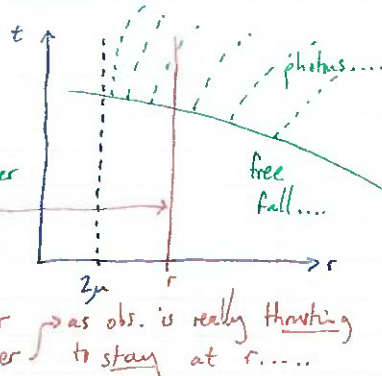 t
photons.....
er
free
fall....
2μ
r
r
r as obs. is really thrusting
er to stay at r.....